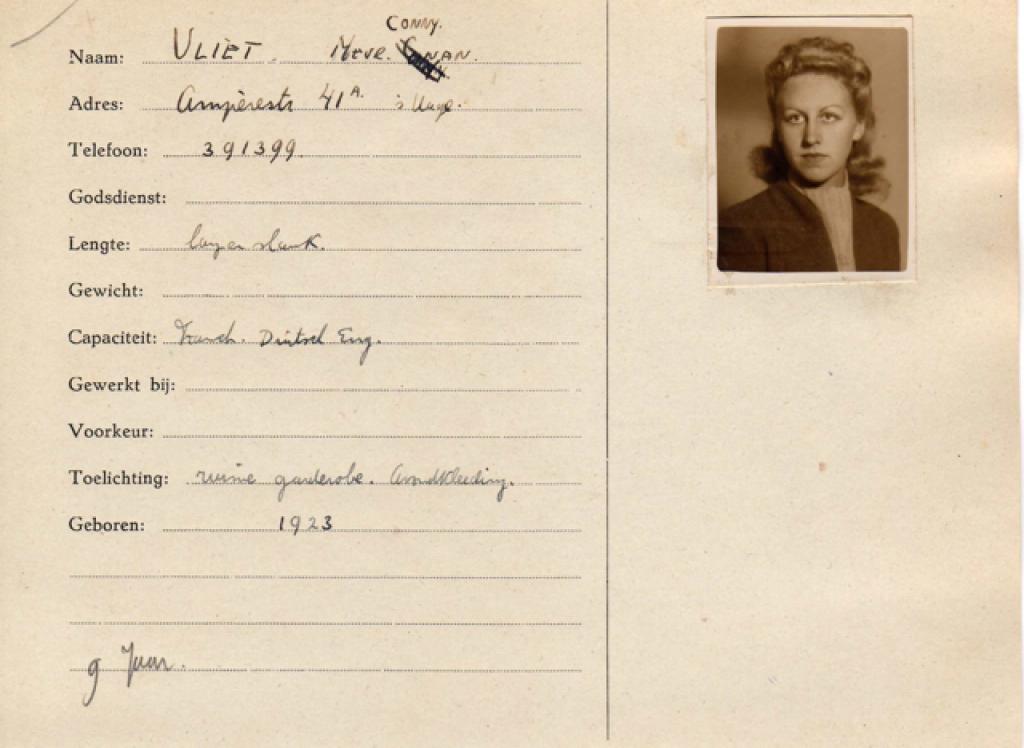 Conny.
Naam: VLIET. Mevr.
Adres: Ampèrestr 41A. 's Hage.
Telefoon: 391399.
Godsdienst:
Lengte: lang en slank.
Gewicht:
Capaciteit: Fransch. Duitsch Eng.
Gewerkt bij:
Voorkeur:
Toelichting: ruime garderobe. Avondkleeding.
Geboren: 1923
9